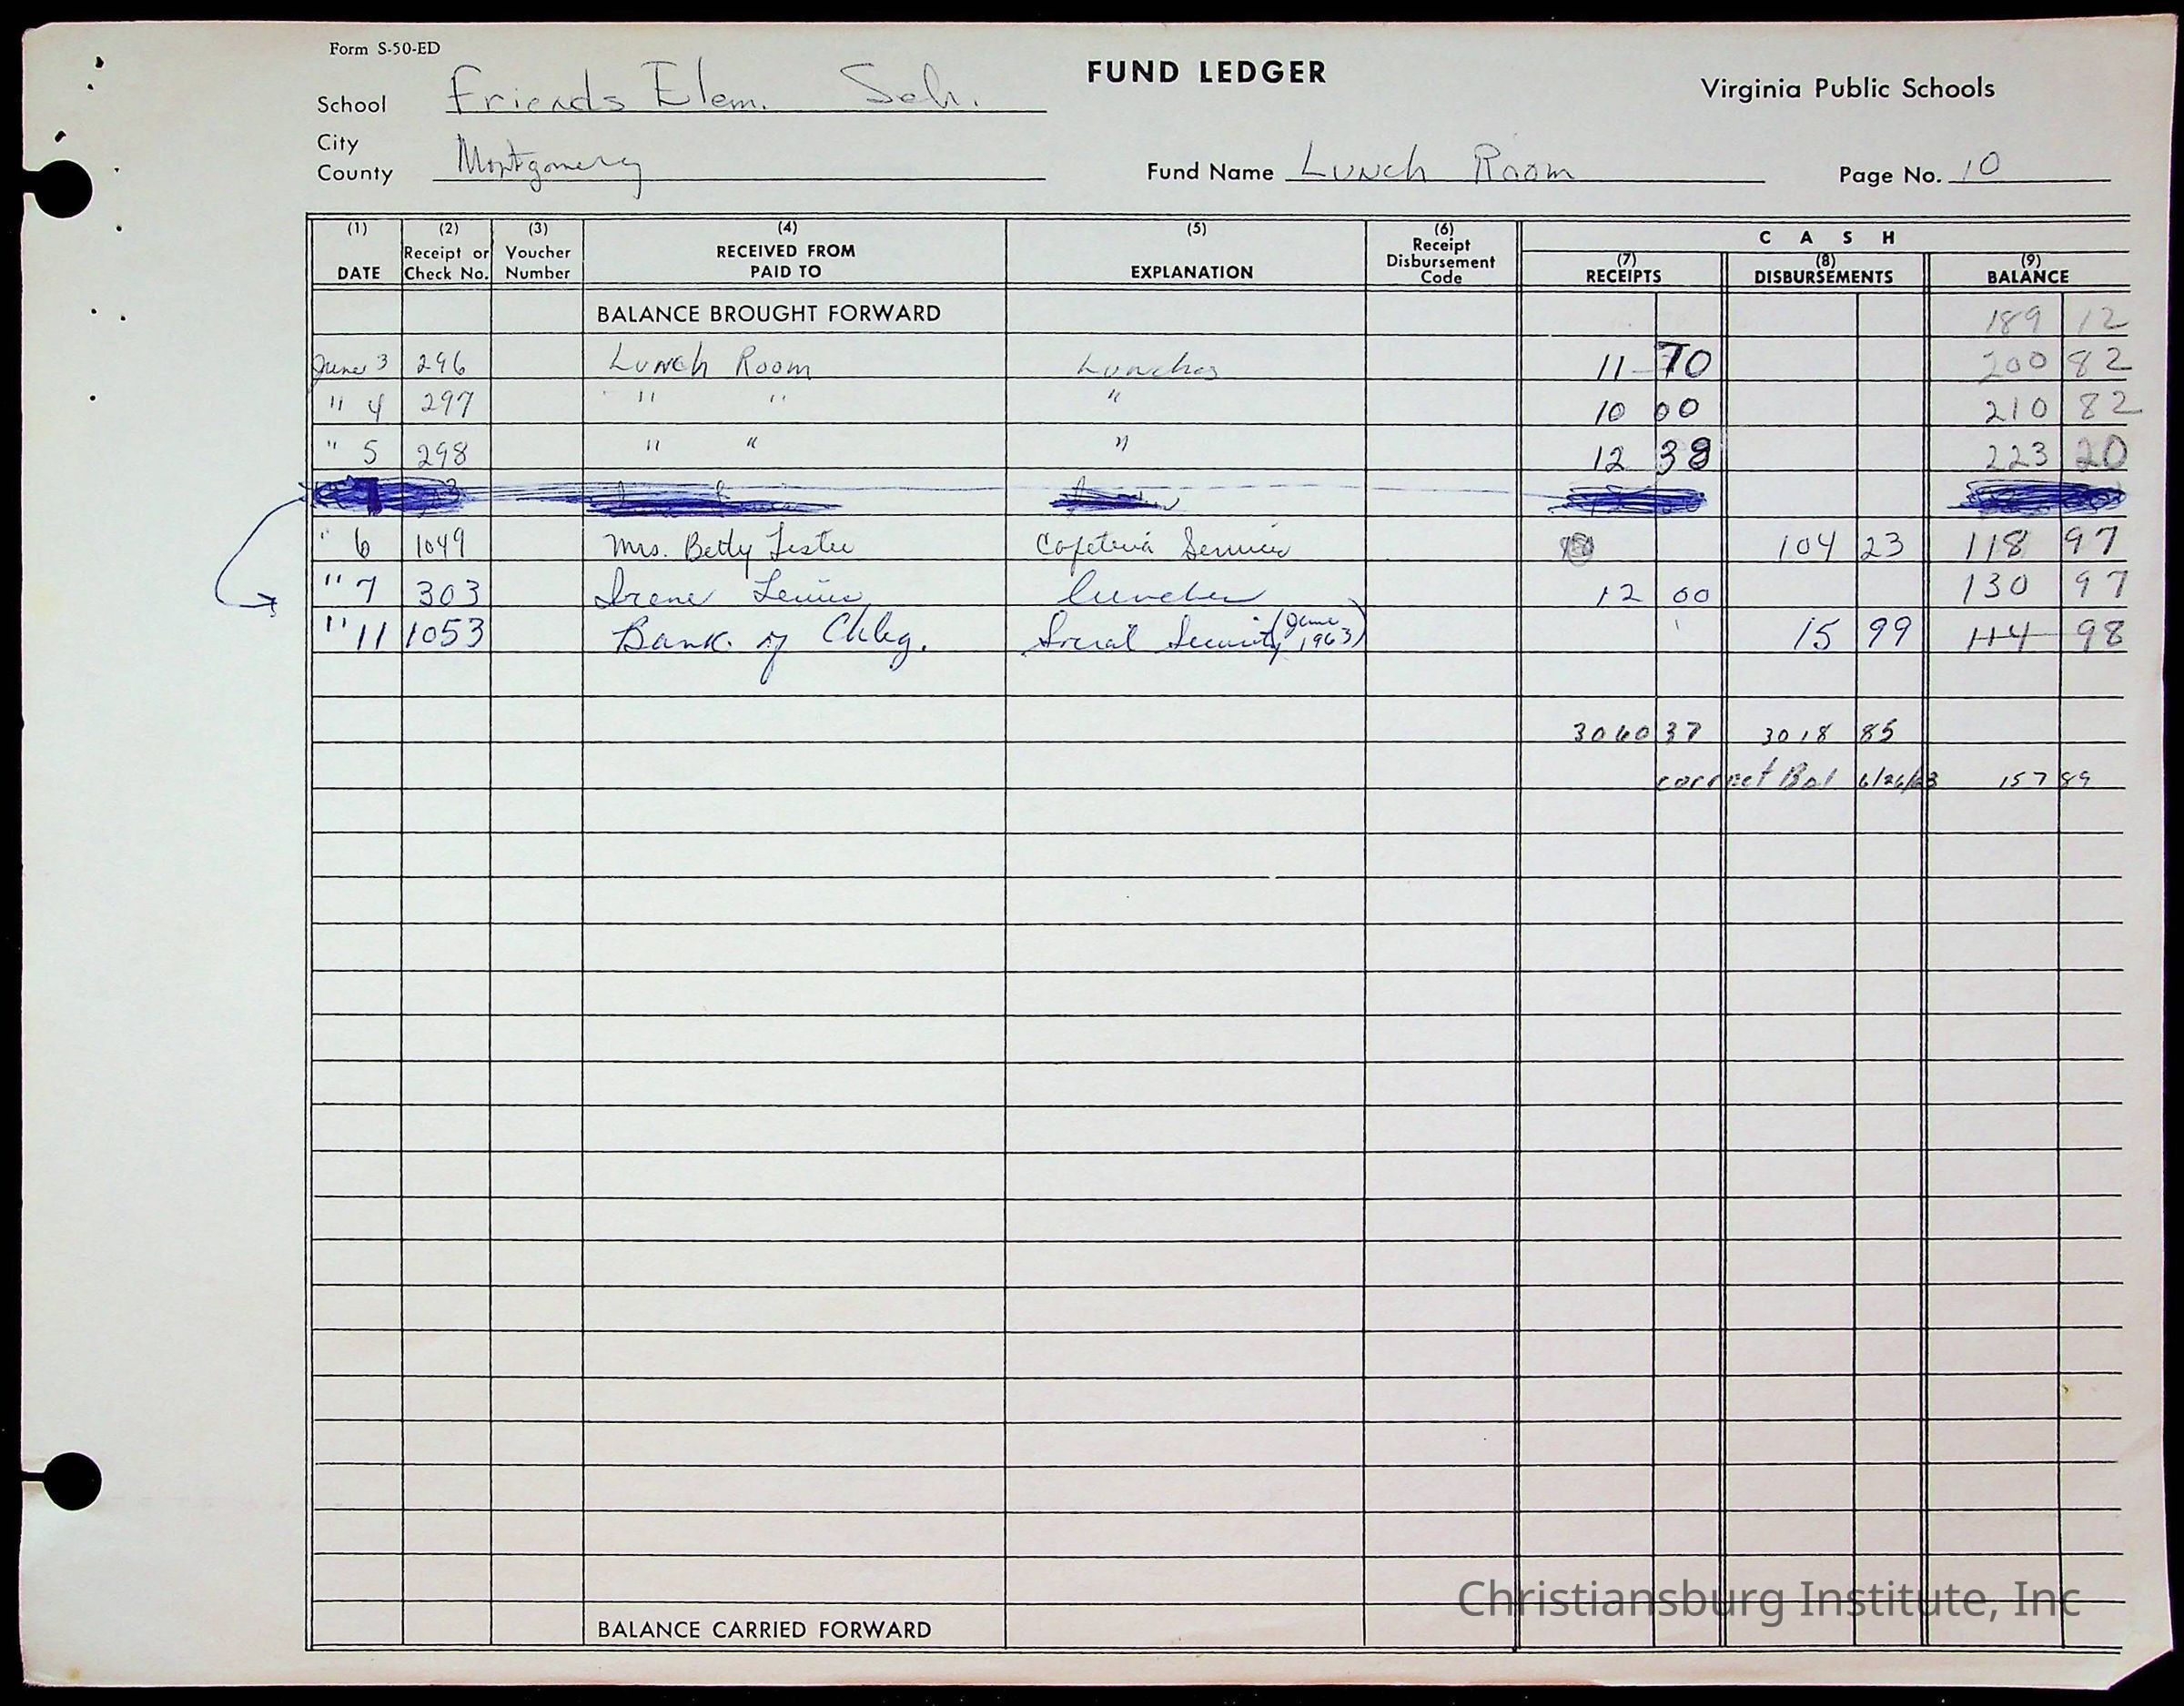 Form S-50-ED
FUND LEDGER
Virginia Public Schools
School Friends Elem. Sch.
City
County Montgomery
Fund Name Lunch Room
Page No. 10
(1) DATE (2) Receipt or Check No. (3) Voucher Number (4) RECEIVED FROM PAID TO (5) EXPLANATION (6) Receipt Disbursement Code CASH (7) RECEIPTS (8) DISBURSEMENTS (9) BALANCE
BALANCE BROUGHT FORWARD 189 12
June 3 296 Lunch Room Lunches 11 70 200 82
" 4 297 " " " 10 00 210 82
" 5 298 " " " 12 38 223 20
" 6 1049 Mrs. Betty Lester Cafeteria Services 104 23 118 97
" 7 303 Irene Lewis Lunches 12 00 130 97
" 11 1053 Bank of Chbg. Social Security (June 1963) 15 99 114 98
3060 37 3018 85
correct Bal 6/26/63 157 89
BALANCE CARRIED FORWARD
Christiansburg Institute, Inc